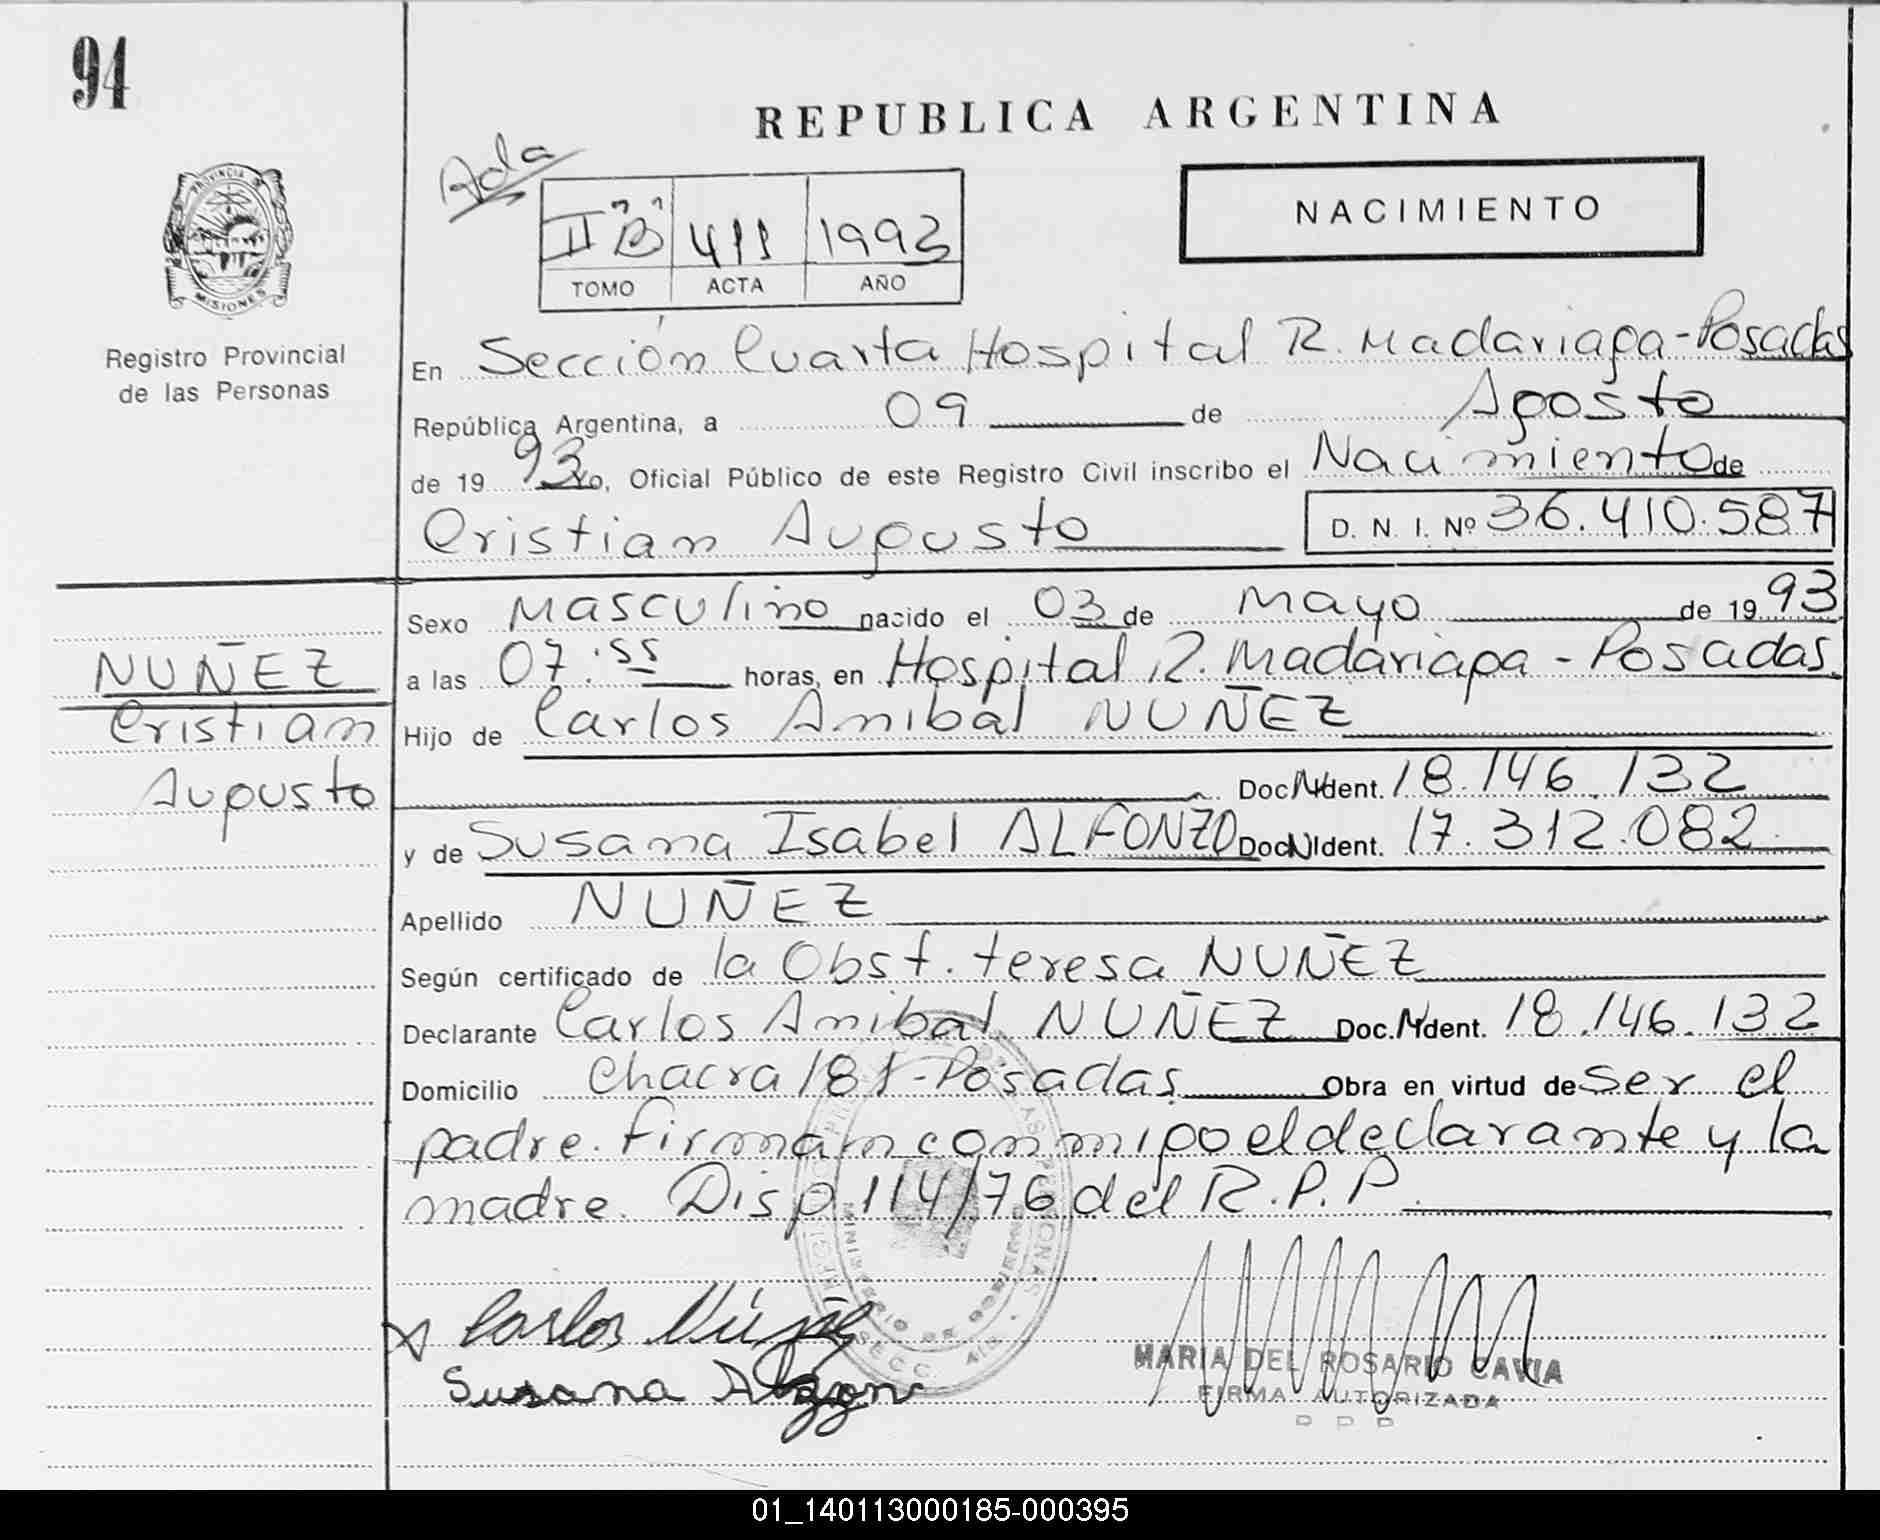 94
REPUBLICA ARGENTINA
Ada
II "B" 411 1993
TOMO ACTA AÑO
NACIMIENTO
PROVINCIA DE
MISIONES
Registro Provincial
de las Personas
En Sección Cuarta Hospital R. Madariaga - Posadas
República Argentina, a 09 de Agosto
de 19 93 yo, Oficial Público de este Registro Civil inscribo el Nacimiento de
Cristian Augusto D. N. I. Nº 36.410.587
Sexo Masculino nacido el 03 de Mayo de 19 93
a las 07:55 horas, en Hospital R. Madariaga - Posadas.
Hijo de Carlos Anibal NUÑEZ
Doc. N. Ident. 18.146.132
y de Susana Isabel ALFONZO Doc N Ident. 17.312.082
Apellido NUÑEZ
Según certificado de la Obst. teresa NUÑEZ
Declarante Carlos Anibal NUÑEZ Doc. N Ident. 18.146.132
Domicilio Chacra 181 - Posadas Obra en virtud de ser el
padre. firman conmigo el declarante y la
madre. Disp. 114/76 del R.P.P.
NUÑEZ
Cristian
Augusto
Carlos Núñez
Susana
MINISTERIO DE GOBIERNO
MARIA DEL ROSARIO CAVIA
FIRMA AUTORIZADA
01_140113000185-000395